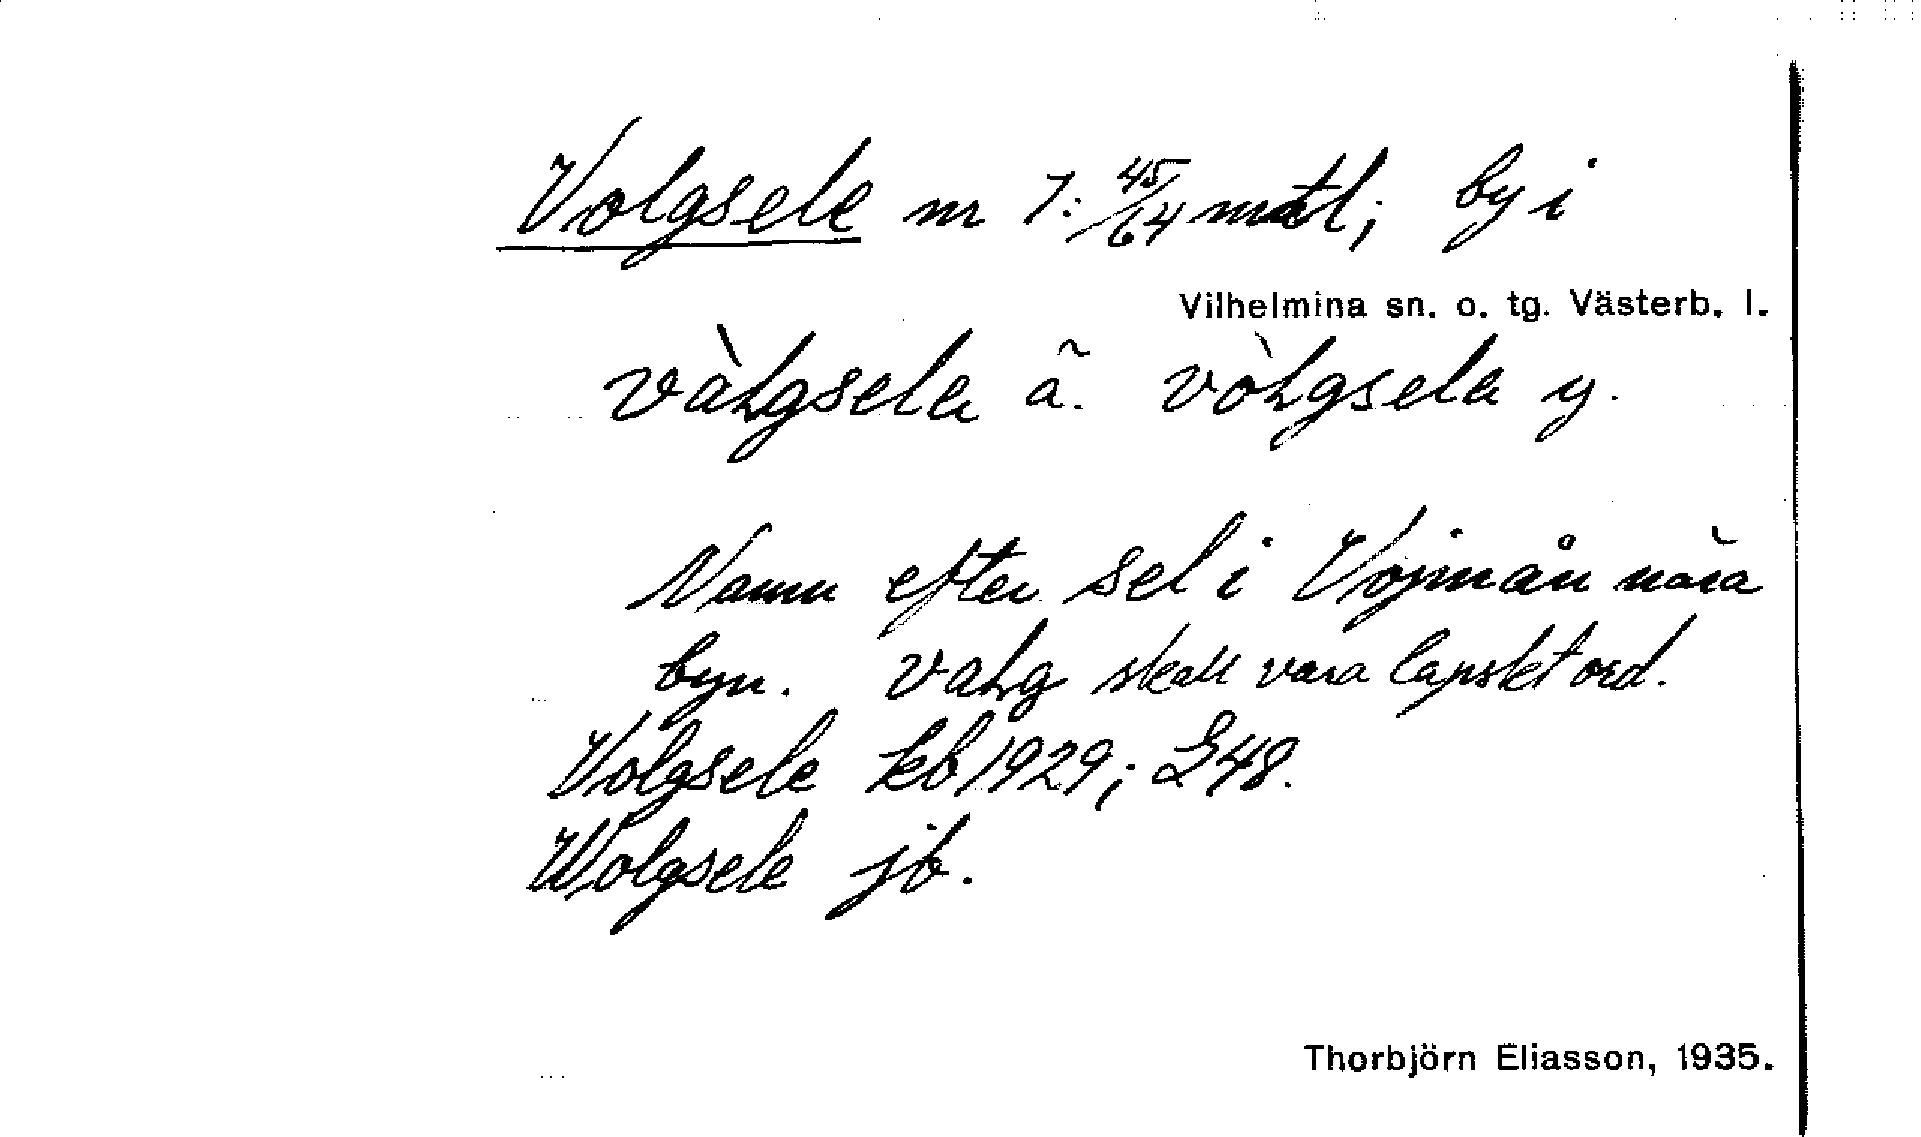 Volgsele nr 1: 45/64 mtl; by i
Vilhelmina sn. o. tg. Västerb. l.
vàɫgsela ä. vòɫgsela y.
Namn efter sel i Vojmån nära
byn. vaɫg skall vara lapskt ord.
Volgsele kb 1929; L48.
Wolgsele jb.
Thorbjörn Eliasson, 1935.